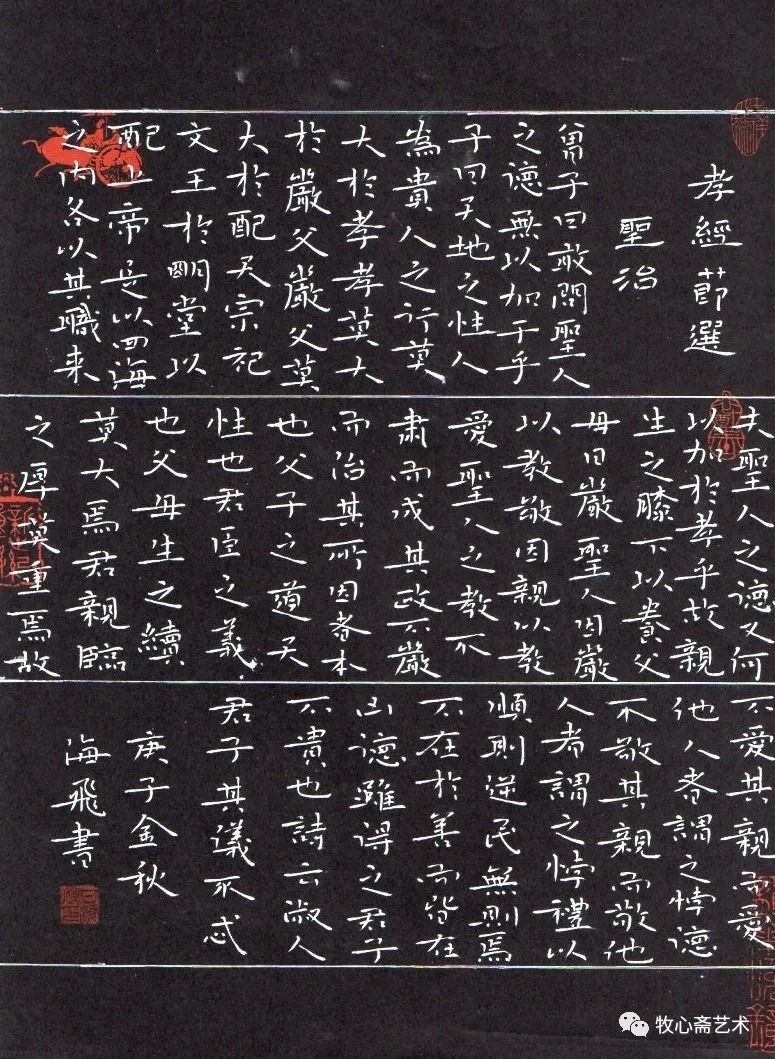 孝經節選
聖治
曾子曰敢問聖人
之德無以加于乎
子曰天地之性人
為貴人之行莫
大於孝孝莫大
於嚴父嚴父莫
大於配天宗祀
文王於明堂以
配上帝是以四海
之内各以其職来
夫聖人之德又何
以加於孝乎故親
生之膝下以養父
母日嚴聖人因嚴
以教敬因親以教
愛聖人之教不
肅而成其政不嚴
而治其所因者本
也父子之道天
性也君臣之義
也父母生之續
莫大焉君親臨
之厚莫重焉故
不愛其親而愛
他人者謂之悖德
不敬其親而敬他
人者謂之悖禮以
順則逆民無則焉
不在於善而皆在
凶德雖得之君子
不貴也詩云淑人
君子其儀不忒
庚子金秋
海飛書
牧心斋艺术